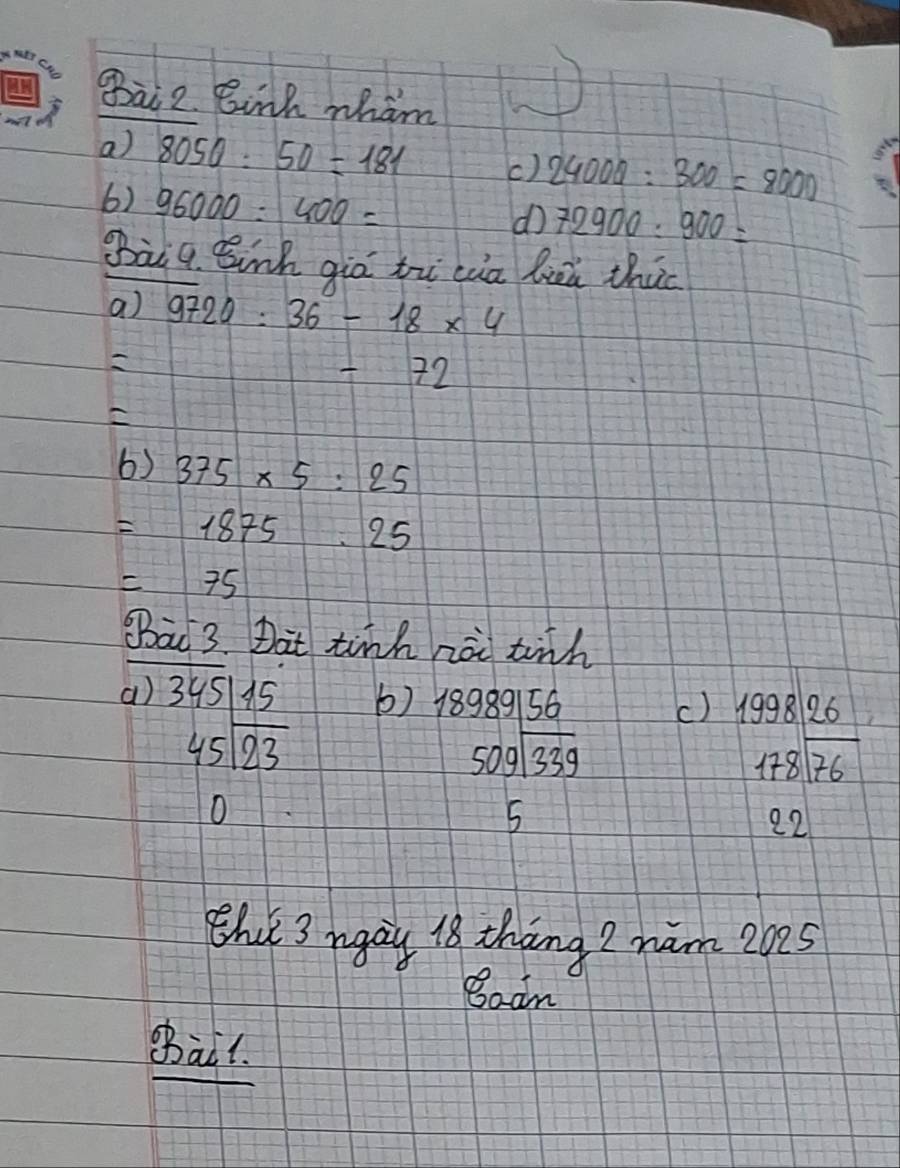 Bài 2. Tính nhẩm
a) 8050 : 50 = 181 c) 24000 : 300 = 8000
b) 96000 : 400 = d) 72900 : 900 =
Bài 4. Tính giá trị của biểu thức
a) 9720 : 36 - 18 x 4
= - 72
=
b) 375 x 5 : 25
= 1875 : 25
= 75
Bài 3. Đặt tính rồi tính
a) 345 15 b) 18989 56 c) 1998 26
45 23 509 339 178 76
0 5 22
Thứ 3 ngày 18 tháng 2 năm 2025
Toán
Bài 1.